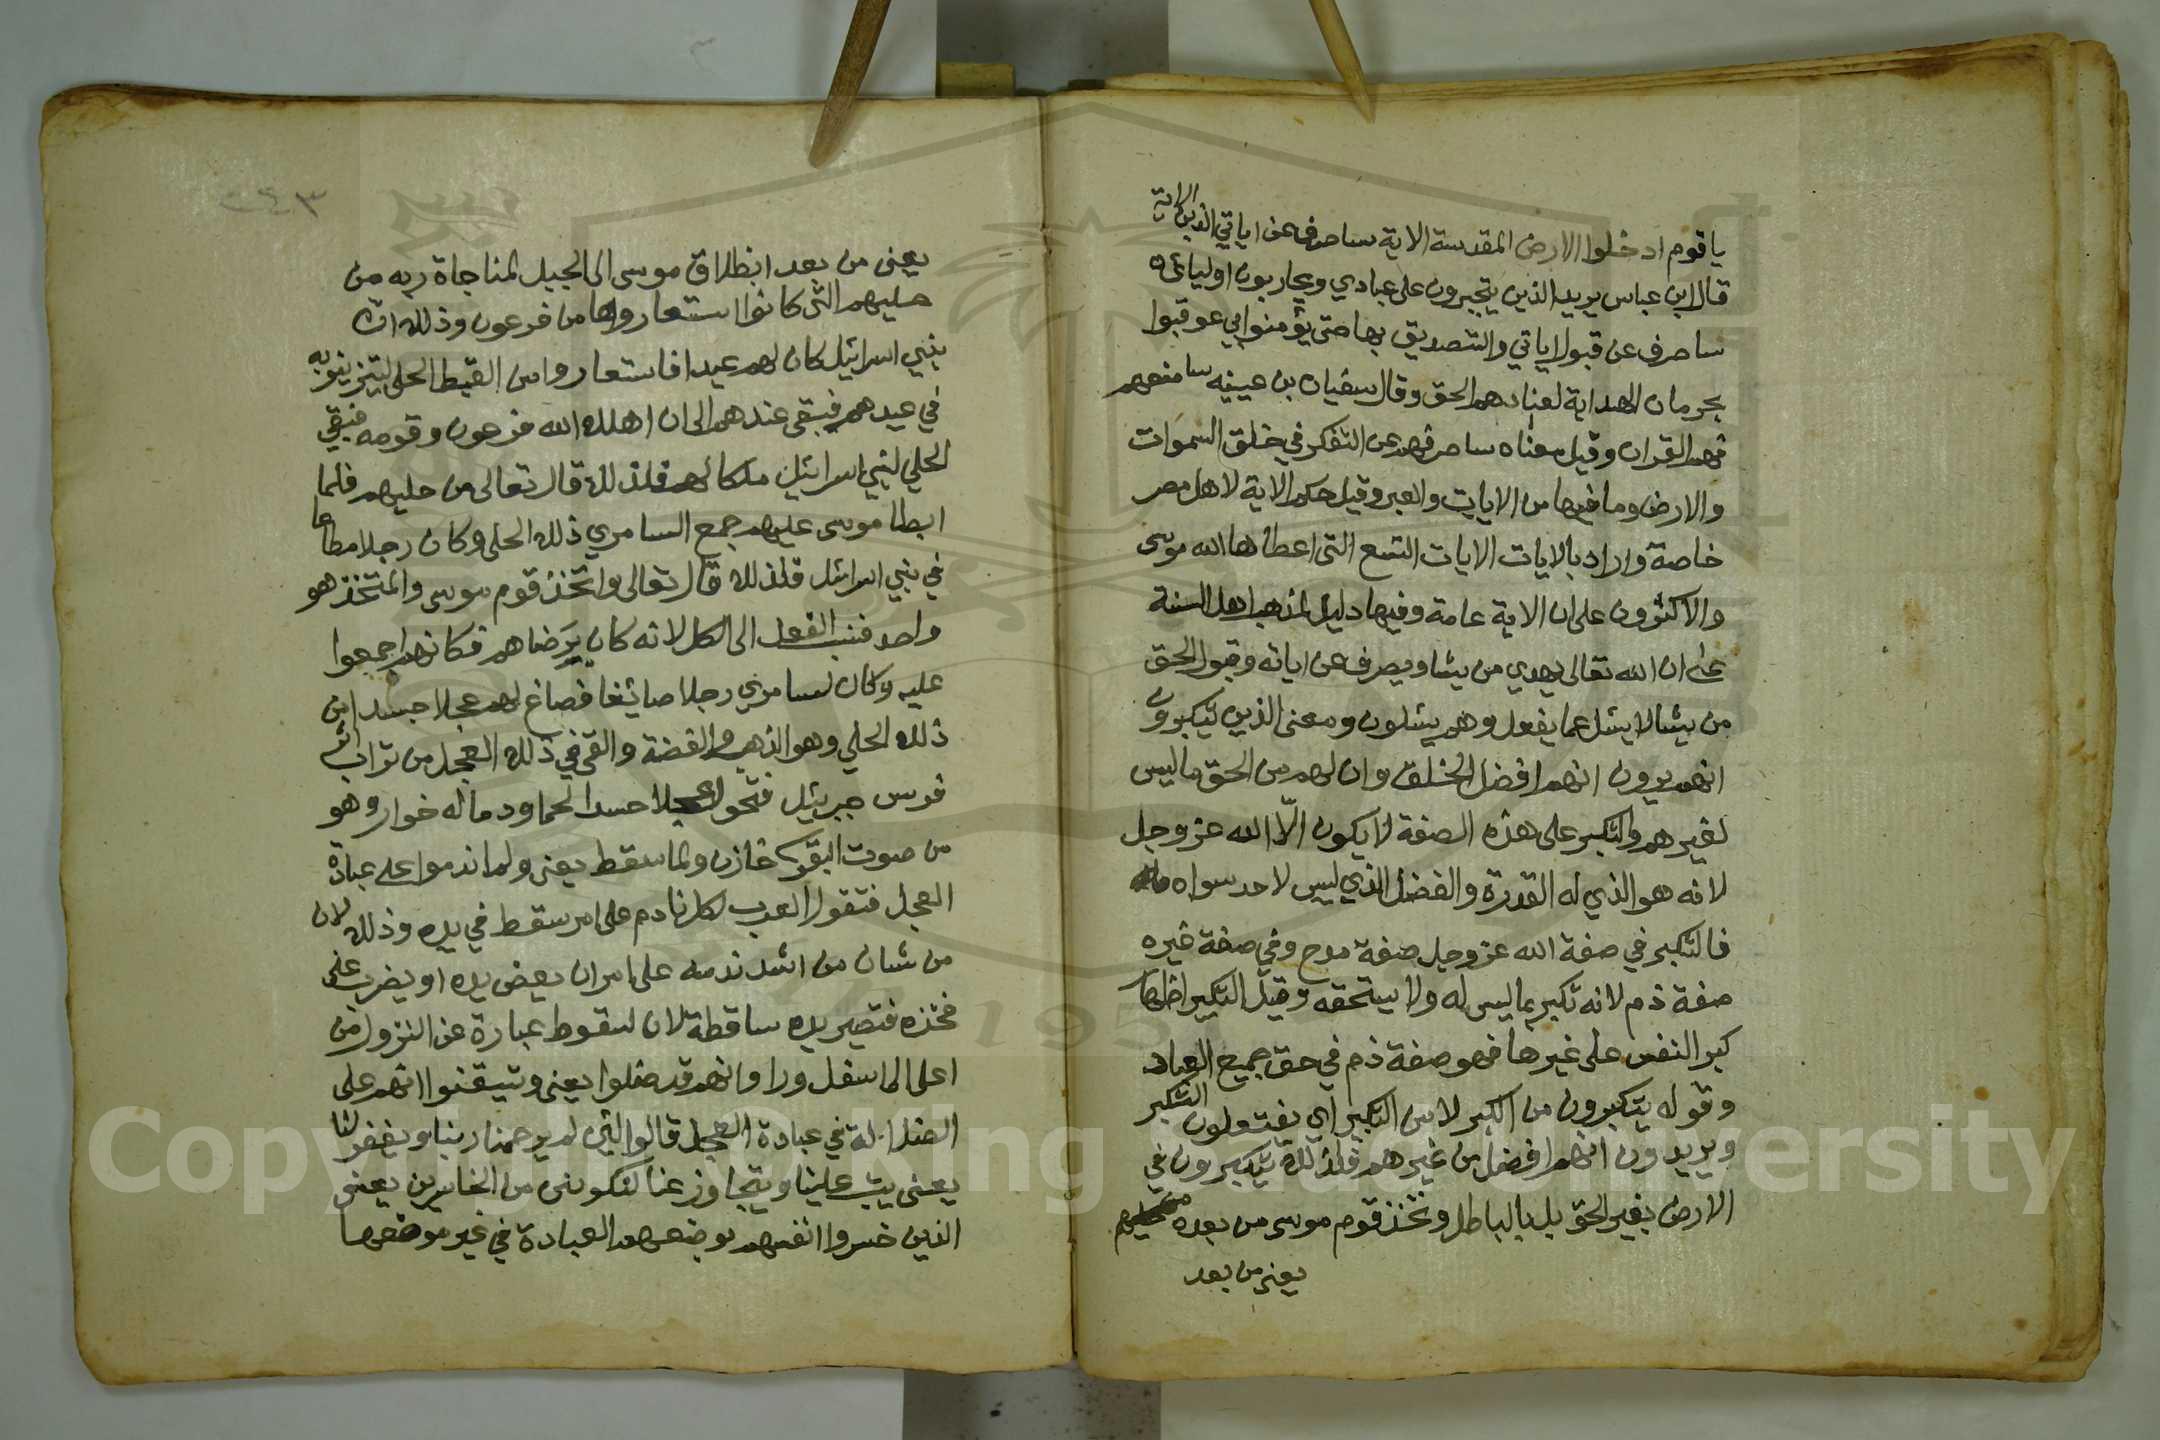 يا قوم ادخلوا الارض المقدسة الاية ساصرف عن اياتي الذين الاية
قال ابن عباس يريد الذين يتجبرون على عبادي ويحاربون اوليائى
ساصرف عن قبول اياتي والتصديق بها حتى يؤمنوا بي عوقبوا
بحرمان الهداية لعنادهم الحق وقال سفيان بن عيينه سامنعهم
فهم القران وقيل معناه ساصرفهم عن التفكر في خلق السموات
والارض وما فيها من الايات والعبر وقيل حكم الاية لاهل مصر
خاصة واراد بالايات الايات التسع التى اعطاها الله موسى
والاكثرون على ان الاية عامة وفيها دليل لمذهب اهل السنة
على ان الله تعالى يهدي من يشا ويصرف عن اياته وقبول الحق
من يشا لا يسئل عما يفعل وهم يسئلون ومعنى الذين يتكبرون
انهم يرون انهم افضل الخلق وان لهم من الحق ما ليس
لغيرهم والتكبر على هذه الصفة لا يكون الّا الله عز وجل
لانه هو الذي له القدرة والفضل الذي ليس لاحد سواه
فالتكبر في صفة الله عز وجل صفة مدح وفي صفة غيره
صفة ذم لانه تكبر بما ليس له ولا يستحقه وقيل التكبر اظهار
كبر النفس على غيرها فهو صفة ذم في حق جميع العباد
وقوله يتكبرون من الكبر لا من التكبر اي يفتعلون التكبر
ويريدون انهم افضل من غيرهم فلذلك يتكبرون في
الارض بغير الحق بل بالباطل وتخذ قوم موسى من بعده من حليهم
يعنى من بعد
٢٤٣
يعنى من بعد انطلاق موسى الى الجبل لمناجاة ربه من
حليهم التى كانوا استعاروها من فرعون وذلك ان
بني اسرائيل كان لهم عيدا فاستعاروا من القبط الحلى ليتزينو به
في عيدهم فبقى عندهم الى ان اهلك الله فرعون وقومه فبقي
الحلي لبني اسرائيل ملكا لهم فلذلك قال تعالى من حليهم فلما
ابطا موسى عليهم جمع السامري ذلك الحلى وكان رجلا مطاعا
في بني اسرائيل فلذلك قال تعالى واتخذ قوم موسى والمتخذ هو
واحد فنسب الفعل الى الكل لانه كان برضاهم فكانهم اجمعوا
عليه وكان لسامري رجلا صائغا فصاغ لهم عجلا جسدا من
ذلك الحلي وهو الذهب والفضة والقى في ذلك العجل من تراب اثر
فرس جبريئل فتحول عجلا جسدا لحما ودما له خوار وهو
من صوت البقر خازن ولما سقط يعنى ولما ندموا على عبادة
العجل فتقول العرب لكل نادم على امر سقط في يده وذلك لان
من شان من اشد ندمه على امر ان يعض يده او يضرب على
فخذه فتصير يده ساقطة لان لسقوط عبارة عن النزول من
اعلى الى اسفل وراوا انهم قد ضلوا يعنى وتيقنوا انهم على
الضلالة في عبادة العجل قالوا لئن لم يرحمنا ربنا ويغفر لنا
يعنى يتب علينا ويتجاوز عنا لنكونن من الخاسرين يعنى
الذين خسروا انفسهم بوضعهم العبادة في غير موضعها
Copyright © King Saud University
195